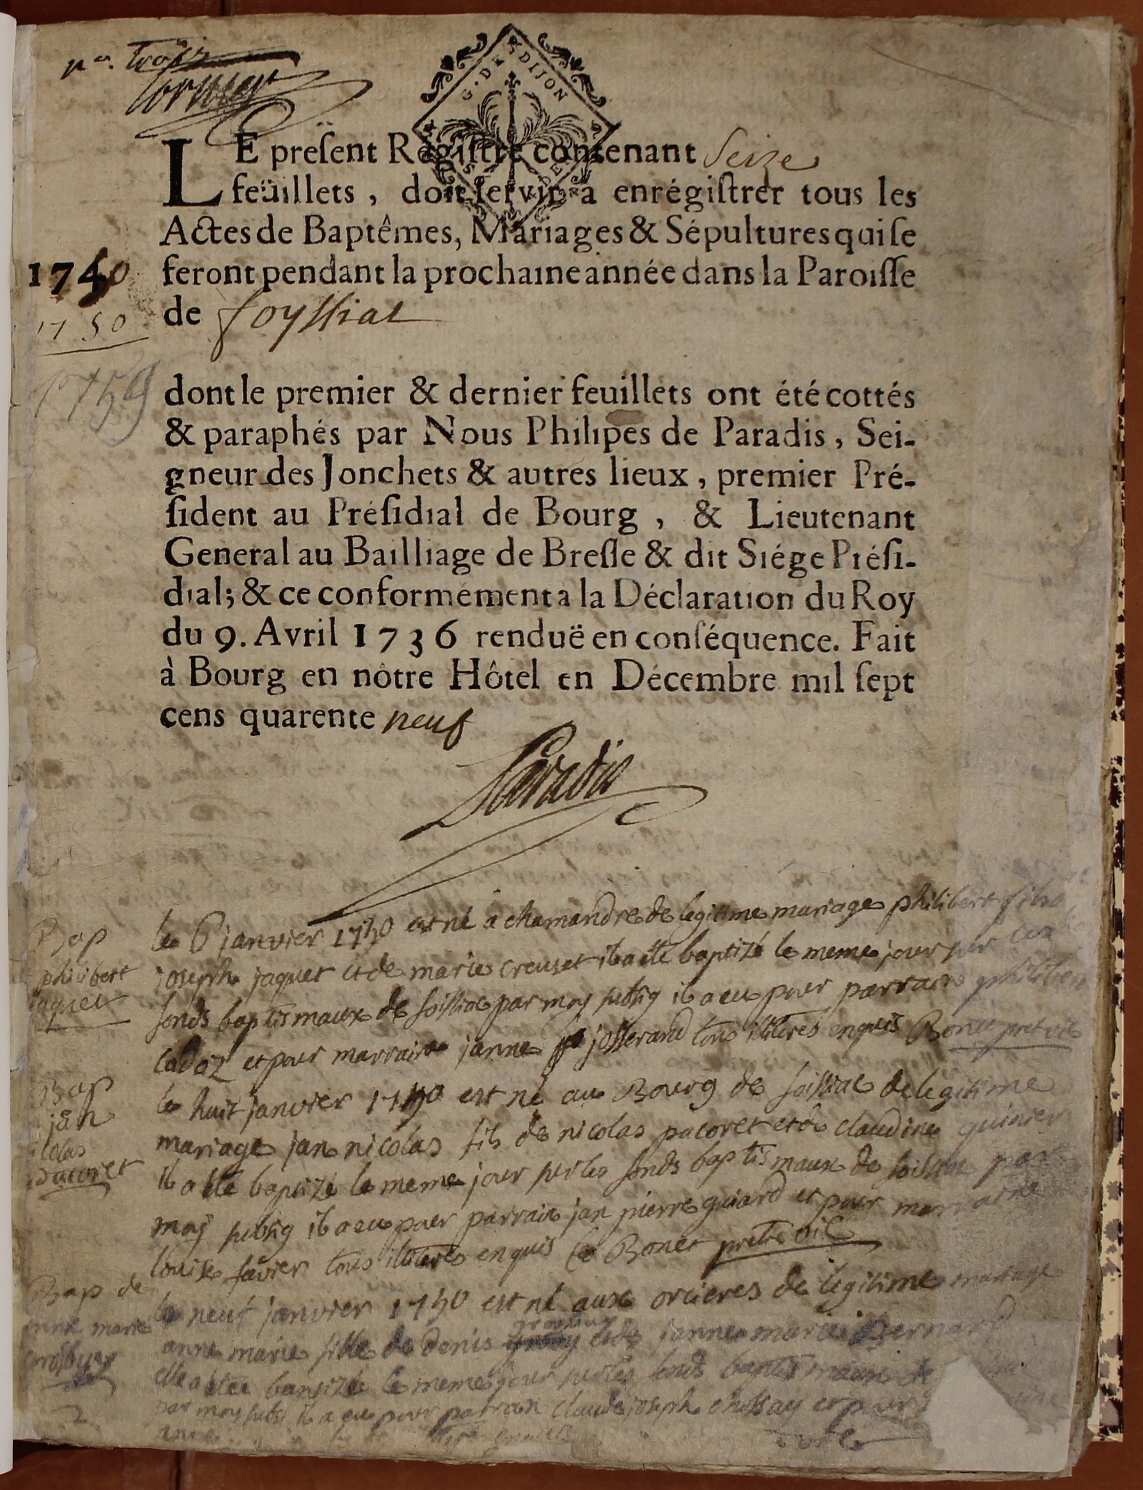 G. DE DIJON
LE preſent Regiſtre contenant Seize
feüillets, doit ſervir a enrégiſtrer tous les
Actes de Baptêmes, Mariages & Sépultures qui ſe
1750 feront pendant la prochaine année dans la Paroiſſe
1750
de foyssiat
1759
dont le premier & dernier feuillets ont été cottés
& paraphés par Nous Philipes de Paradis, Sei-
gneur des Jonchets & autres lieux, premier Pré-
ſident au Préſidial de Bourg, & Lieutenant
General au Bailliage de Breſſe & dit Siége Préſi-
dial; & ce conformément a la Déclaration du Roy
du 9. Avril 1736 renduë en conſéquence. Fait
à Bourg en nôtre Hôtel en Décembre mil ſept
cens quarente neuf
Paradis
Bap
philibert
jaquet
le 6 janvier 1750 est né a chamandre de legitime mariage philibert fils
joseph jaquet et de marie creuset il a ete baptizé le meme jour sur les
fonds baptismaux de foissiat par moy subsig il a eu pour parrain philibert
cadoz et pour marraine janne josserand tous illiteres enquis Bonet pretre vic
Bap
jan
nicolas
pacoret
le huit janvier 1750 est né au Bourg de foissiat de legitime
mariage jan nicolas fils de nicolas pacoret et de claudine
il a ete baptizé le meme jour sur les fonds baptismaux de foissiat par
moy subsig il a eu pour parrain jan pierre guiard et pour marraine
louise favier tous illiteres enquis Bonet pretre vic
Bap de
anne marie
le neuf janvier 1750 est né aux orcieres de legitime mariage
anne marie fille de denis et de janne marie Bernard
elle a ete baptizée le meme jour sur les fonds baptismaux de
par moy subsi il a eu pour parrain claude joseph chassay et pour